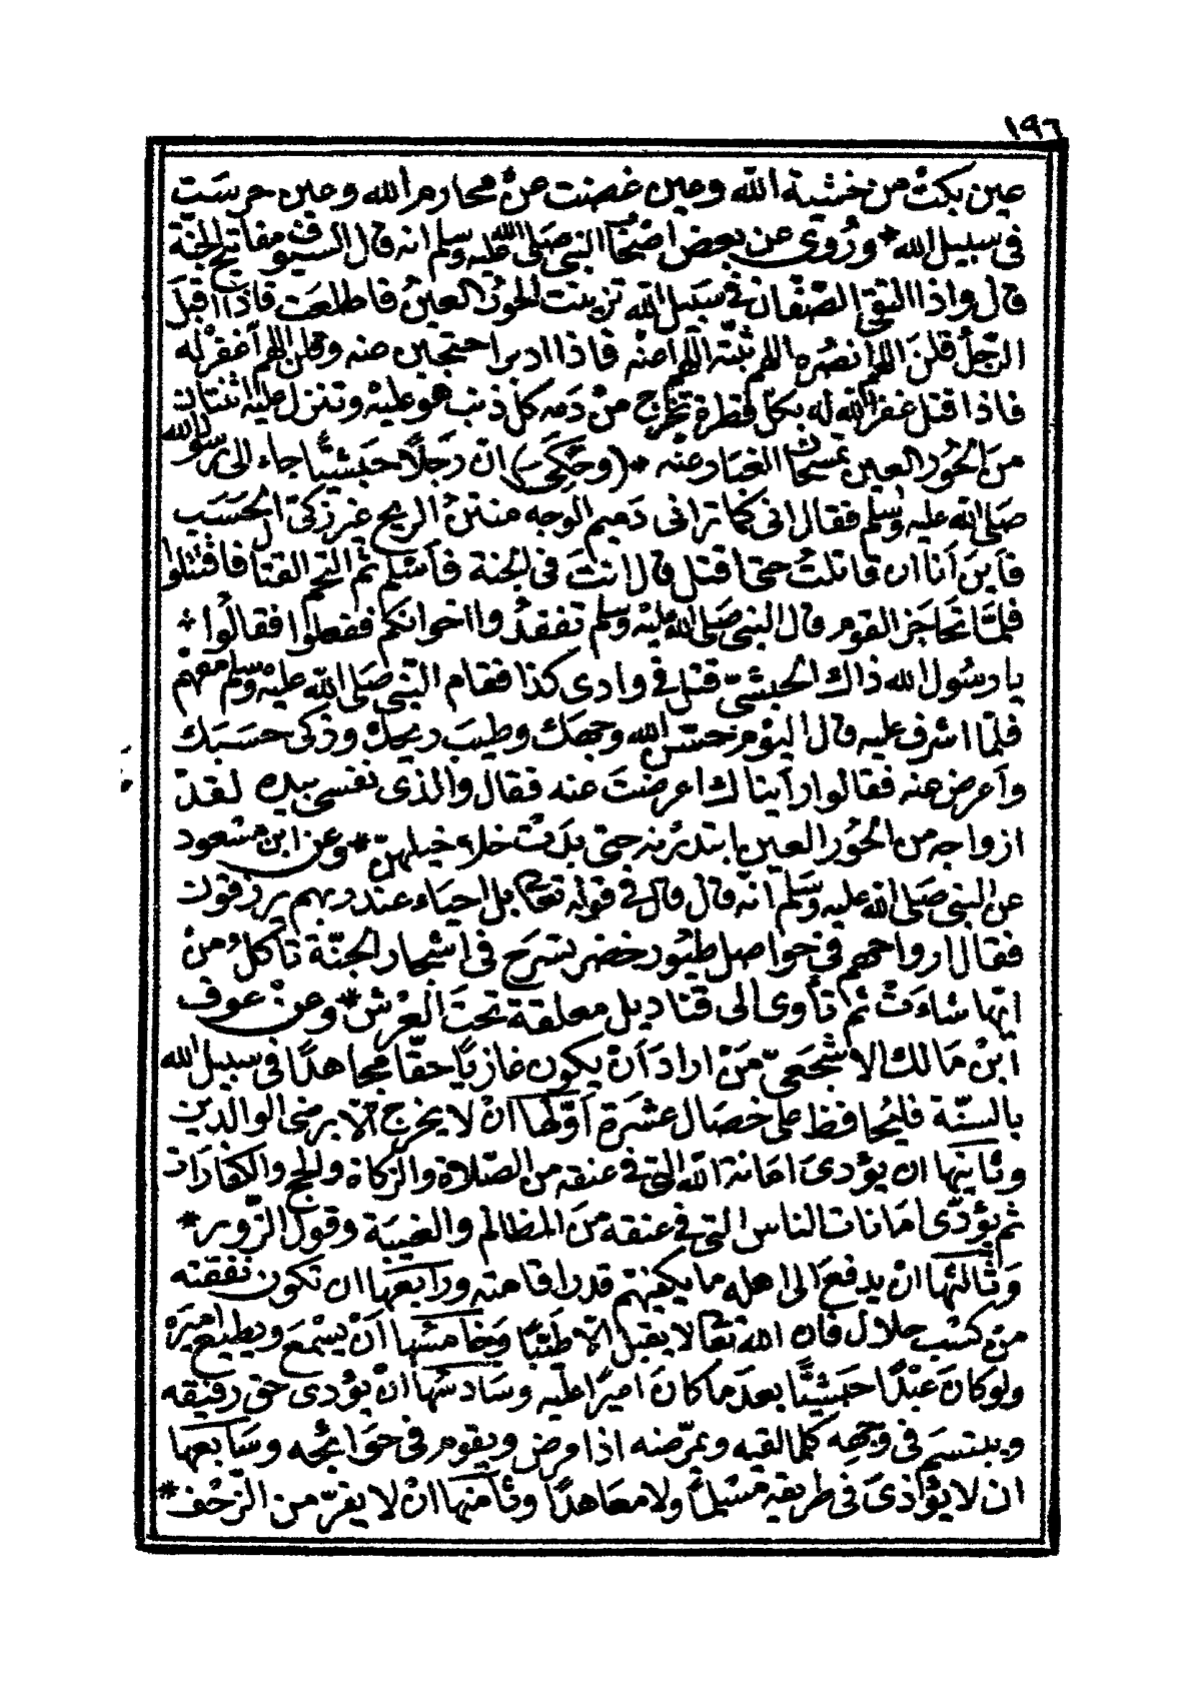 ١٩٦
عين بكتْ من خشية الله وعين غضت عنْ محارم الله وعين حرسَت
فى سبيل الله * ورُوى عن بعض اصْحاب النبى صَلى الله عليه وسلم انه قال السيوف مفاتيح الجنّة
قال واذا التقى الصّفّان فى سَبيل الله تزينت الحورُ العينُ فاطلعَت فاذا اقبلَ
الرّجلُ قلنَ اللهم انصُره اللهم ثبّته اللهم اعنْه فاذا ادبر احتجبن عنه وقلن اللهم اغفرْ له
فاذا قتل غفر الله له بكلّ قطرة تخرج منْ دَمه كلّ ذنب هو عليْه وتنزل عليْه اثنتان
منَ الحُور العين تمسحان الغبار عنْه * (وحكىَ) انّ رَجلًا حبَشيًّا جاء الى رسول الله
صَلى الله عليه وسلم فقال انى كما ترانى دَميم الوجه منتنُ الريح غير زكىّ الحسَب
فأينَ أنا ان قاتلتُ حتى اقتل قال انتَ فى الجنة فأسْلم ثم التحَم القتال فاقتتلوا
فلمّا تَحاجَز القوم قال النبى صَلى الله عليْه وسلم تفقدُوا اخوانكم ففعلوا فقالُوا *
يا رسُول الله ذاك الحبشىّ قتل فى وادى كذا فقام النّبى صَلى الله عليْه وسلم معهم
فلمّا اشرف عليه قال اليوْم حسّن الله وجهَك وطيبَ ريحكَ وزكى حسَبك
وأعرض عنه فقالوا رأيناك اعرضتَ عنه فقال والذى نفسى بيده لقدْ
ازواجه من الحُور العين ابتدرْنه حتى بدَتْ خلاخيلهنّ * وعن ابن مسْعود
عن النبى صَلى الله عليه وسَلم انّه قال قال فى قوله تعالى بل احياء عند ربهم يرزقون
فقال ارواحهم فى حواصل طيُور خضر تسْرَح فى اشجار الجنّة تأكلُ منْ
ايّها شاءَتْ ثم تأوى الى قناديل معلقة تحتَ العرْش * وعنْ عوف
ابنْ مَالك الاشْجعىّ مَنْ ارادَ أنْ يكون غازيًا حقّا مجاهدًا فى سبيل الله
بالسنّة فليُحافظ على خصَال عشرَة أوّلها انْ لا يخرج الّا برضى الوالدين
وثانيَها ان يؤدىَ امانة الله التى فى عنقه من الصّلاة والزكاة والحج والكفارات
ثم يؤدّى امَانات الناس التى فى عنقه منَ المظالم والغيبَة وقول الزّور *
وَثالثها انْ يدفعَ الى اهله ما يكفيهم قدر اقامته ورابَعها ان تكون نفقته
منْ كسْب حلال فان الله تعالى لا يقبل الّا طيّبًا وَخامسْها أنْ يسْمعَ ويطيع اميرَه
ولو كانَ عَبْدًا حبَشيًّا بعدَ ما كانَ اميرًا عليه وسَادسُها أنْ يؤدى حق رفيْقه
ويبتسمَ فى وَجْهه كلما لقيه ويمرّضه اذا مرض ويقوم فى حَوَائجه وسَابعها
ان لا يؤاذىَ فى طريقه مسْلمًا ولا معَاهدًا وثَامنها انْ لا يفرّ من الزّحْف *